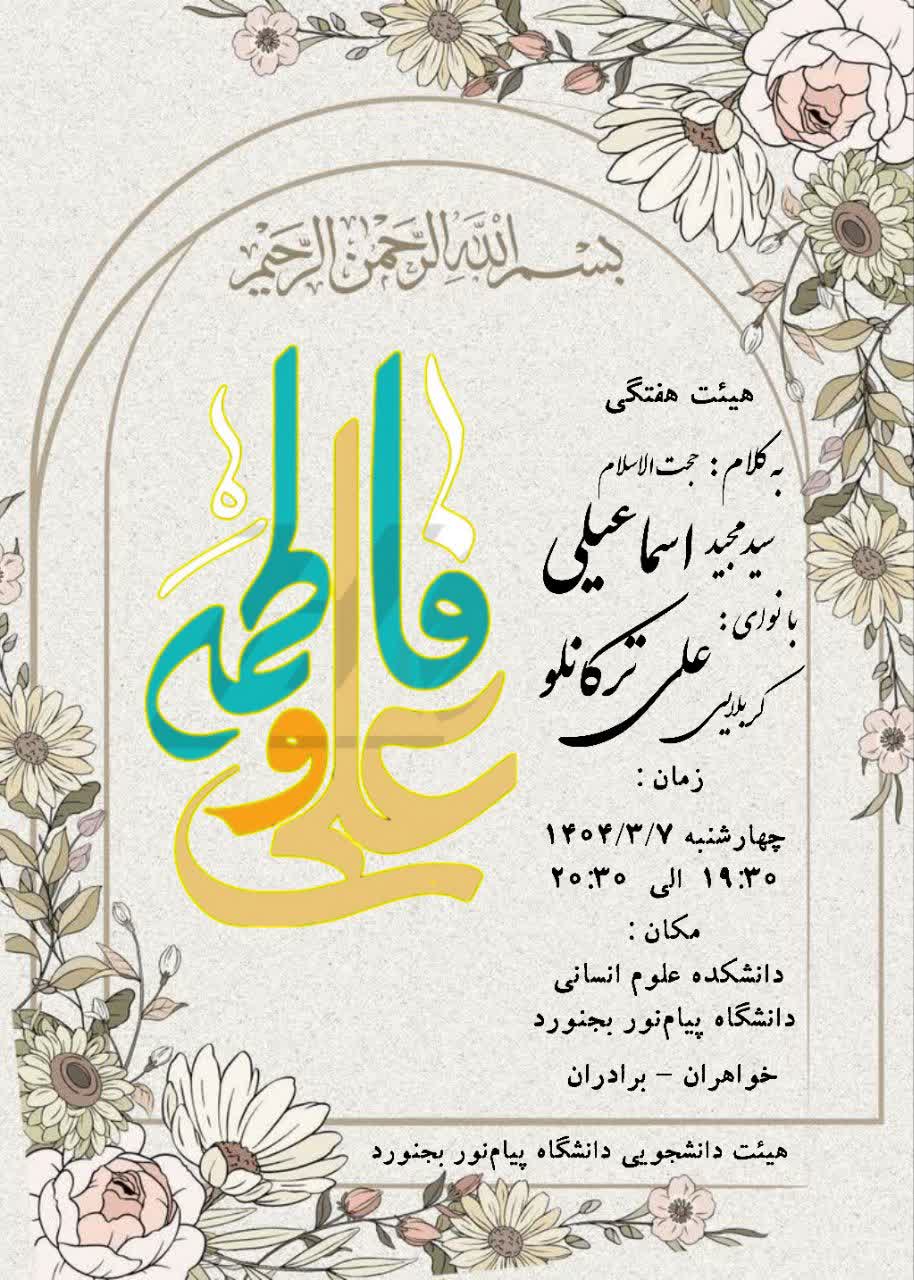 بسم الله الرحمن الرحیم
علی و فاطمه
هیئت هفتگی
به کلام : حجت الاسلام
سید مجید اسماعیلی
با نوای :
کربلایی علی ترکانلو
زمان :
چهارشنبه ۱۴۰۴/۳/۷
۱۹:۳۰ الی ۲۰:۳۰
مکان :
دانشکده علوم انسانی
دانشگاه پیام‌نور بجنورد
خواهران – برادران
هیئت دانشجویی دانشگاه پیام‌نور بجنورد